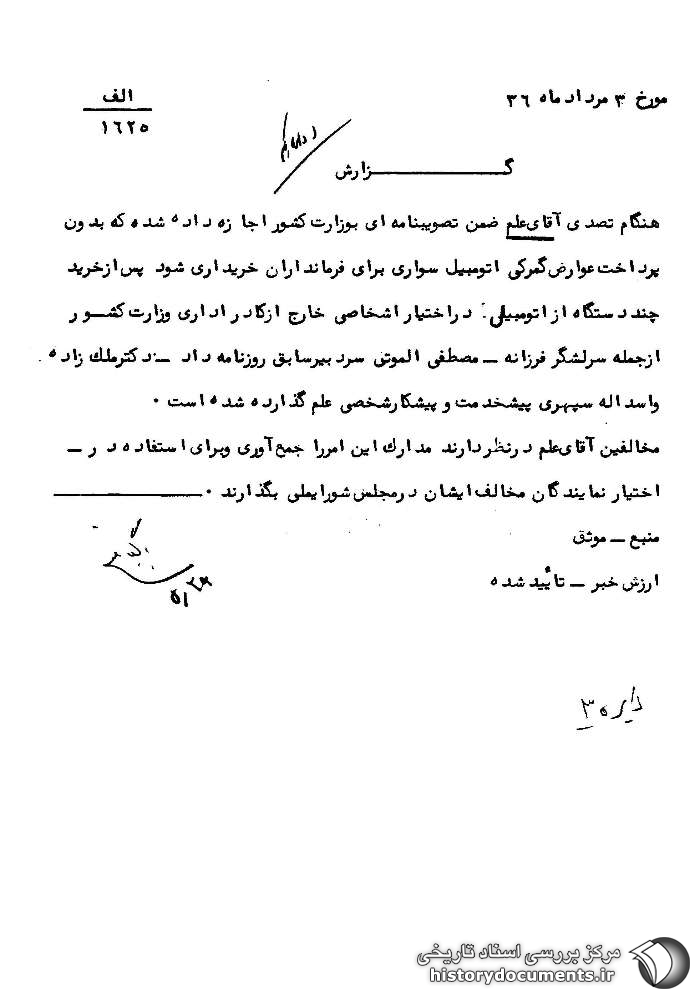 مورخ ۳ مرداد ماه ۳۶
الف
۱٦۲۵
گزارش
هنگام تصدی آقای علم ضمن تصویبنامه ای بوزارت کشور اجازه داده شده که بدون
پرداخت عوارض گمرکی اتومبیل سواری برای فرمانداران خریداری شود پس از خرید
چند دستگاه از اتومبیل در اختیار اشخاصی خارج از کادر اداری وزارت کشور
از جمله سرلشگر فرزانه ـ مصطفی الموتی سردبیر سابق روزنامه داد ـ دکتر ملک زاده
و اسداله سپهری پیشخدمت و پیشکار شخصی علم گذارده شده است ۰
مخالفین آقای علم در نظر دارند مدارک این امر را جمع آوری و برای استفاده در ـ
اختیار نمایندگان مخالف ایشان در مجلس شورایملی بگذارند ۰
منبع ـ موثق
ارزش خبر ـ تأیید شده
دایره ۳
مرکز بررسی اسناد تاریخی
historydocuments.ir